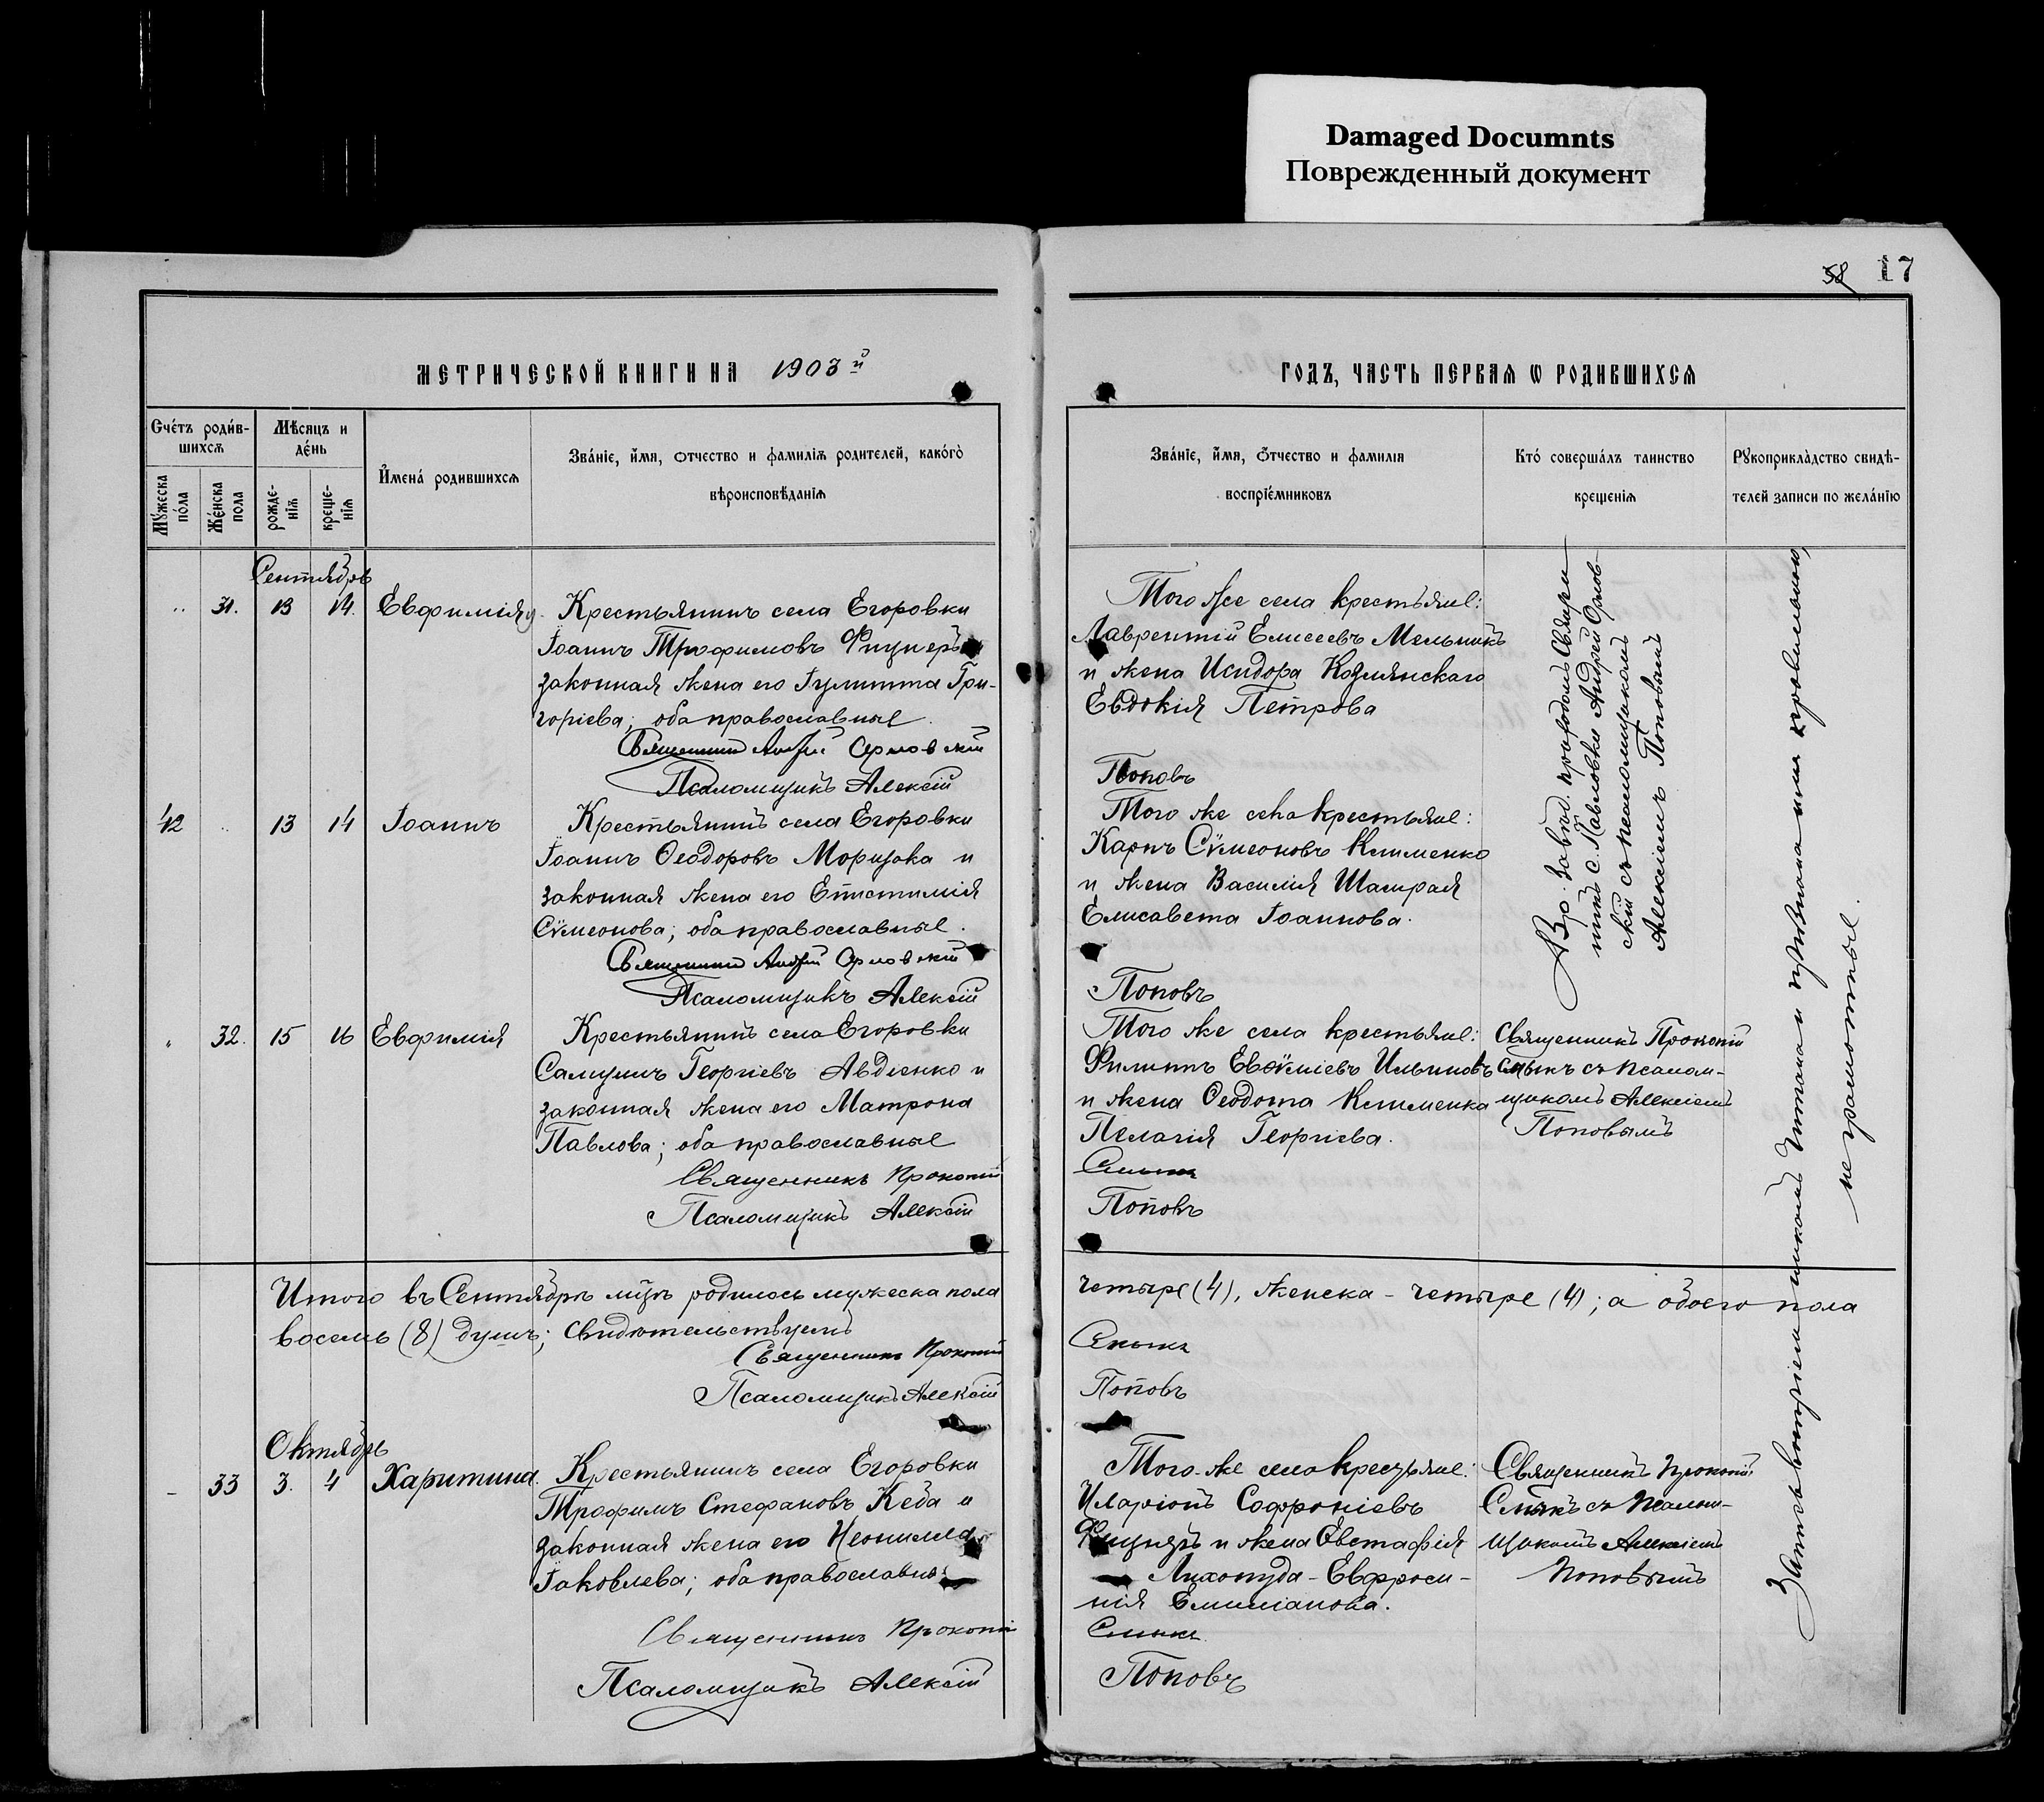 Damaged Documnts
Поврежденный документ
58 17
МЕТРИЧЕСКОЙ КНИГИ НА 1903й
ГОДЪ, ЧАСТЬ ПЕРВАЯ Ѡ РОДИВШИХСЯ
Счéтъ роди́в-
шихсѧ
Мѣсяцъ и
дéнь
Мꙋ́жеска
пóла
Жéнска
пола
рожде-
нїѧ
креще-
нїѧ
И҆менá родившихсѧ
Звáнїе, и҆́мя, ѻтчество и фамилїѧ родителей, какóгò
вѣроисповѣ́данїѧ
Звáнїе, и҆́мя, ѻ҆́тчество и фамилїѧ
воспрїéмниковъ
Ктó совершáлъ таинство
крещенїѧ
Рꙋкоприклàдство свидѣ-
телей записи по желáнїю
Сентябрь
31. 13 14. Евфимія
Крестьянинъ села Егоровки
Іоаннъ Трофимовъ Фицнеръ и
законная жена его Іулитта Гри-
горіева; оба православные.
Священникъ Андрей Орловскій
Псаломщикъ Алексій
Того же села крестьяне:
Лаврентій Елисеевъ Мельникъ
и жена Исидора Козлянскаго
Евдокія Петрова
Поповъ
Вр. завѣд. приходомъ Священ-
никъ с. Павловки Андрей Орлов-
скій съ псаломщикомъ
Алексіемъ Поповымъ
42 13 14 Іоаннъ
Крестьянинъ села Егоровки
Іоаннъ Ѳеодоровъ
и
законная жена его Епистимія
Сѵмеонова; оба православные.
Священникъ Андрей Орловскій
Псаломщикъ Алексій
Того же села крестьяне:
Карпъ Сѵмеоновъ Клименко
и жена Василія Шамрая
Елисавета Іоаннова.
Поповъ
32. 15 16 Евфимія
Крестьянинъ села Егоровки
Самуилъ Георгіевъ Авдіенко и
законная жена его Матрона
Павлова; оба православные
Священникъ Прокопій
Псаломщикъ Алексій
Того же села крестьяне:
Филиппъ Евѳиміевъ
и жена Ѳеодота Клименка
Пелагія Георгіева.
Поповъ
Священникъ Прокопій
съ псалом-
щикомъ Алексіемъ
Поповымъ
Итого въ Сентябрѣ мцѣ родилось мужеска пола
четыре (4), женска - четыре (4); а обоего пола
восемь (8) душъ; свидѣтельствуемъ
Священникъ Прокопій
Псаломщикъ Алексій
Поповъ
Октябрь
33 3. 4 Харитина.
Крестьянинъ села Егоровки
Трофимъ Стефановъ Кеба и
законная жена его Неонилла
Іаковлева; оба православные
Священникъ Прокопій
Псаломщикъ Алексій
Того-же села крестьяне:
Иларіонъ Софроніевъ
и жена Евстафія
Лихопуда - Евфроси-
нія Емиліанова.
Поповъ
Священникъ Прокопій
съ псалом-
щикомъ Алексіемъ
Поповымъ
неграмотные.